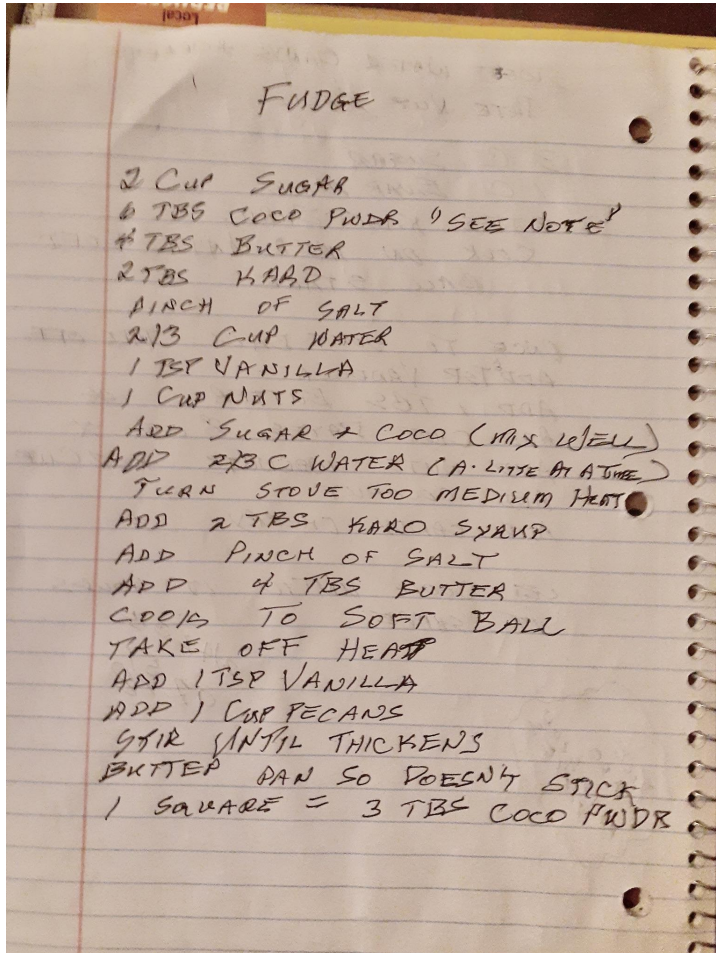 Local
FUDGE
2 CUP SUGAR
6 TBS COCO PWDR "SEE NOTE"
4 TBS BUTTER
2 TBS KARO
PINCH OF SALT
2/3 CUP WATER
1 TSP VANILLA
1 CUP NUTS
ADD SUGAR + COCO (MIX WELL)
ADD 2/3 C WATER (A. LITTE AT A TIME)
TURN STOVE TOO MEDIUM HEAT
ADD 2 TBS KARO SYRUP
ADD PINCH OF SALT
ADD 4 TBS BUTTER
COOK TO SOFT BALL
TAKE OFF HEAT
ADD 1 TSP VANILLA
ADD 1 CUP PECANS
STIR UNTIL THICKENS
BUTTER PAN SO DOESN'T STICK
1 SQUARE = 3 TBS COCO PWDR